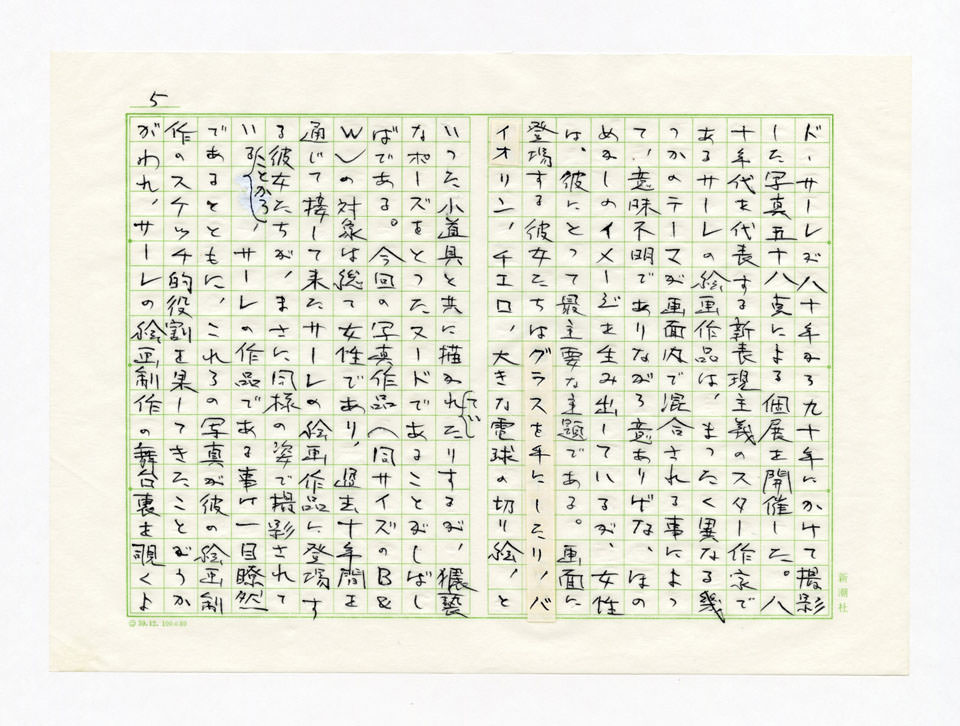 5
ド・サーレが八十年から九十年にかけて撮影
した写真五十八点による個展を開催した。八
十年代を代表する新表現主義のスター作家で
あるサーレの絵画作品は、まったく異なる幾
つかのテーマが画面内で混合される事によっ
て、意味不明でありながら意ありげな、ほの
めかしのイメージを生み出しているが、女性
は、彼にとって最主要な主題である。画面に
登場する彼女たちはグラスを手にしたり、バ
イオリン、チェロ、大きな電球の切り絵、と
いった小道具と共に描かれていたりするが、猥褻
なポーズをとったヌードであることがしばし
ばである。今回の写真作品(同サイズのB&
W)の対象は総て女性であり、過去十年間を
通じて接して来たサーレの絵画作品に登場す
る彼女たちが、まさに同様の姿で撮影されて
いることから、サーレの作品である事は一目瞭然
であるとともに、これらの写真が彼の絵画制
作のスケッチ的役割を果してきたことがうか
がわれ、サーレの絵画制作の舞台裏を覗くよ
新潮社